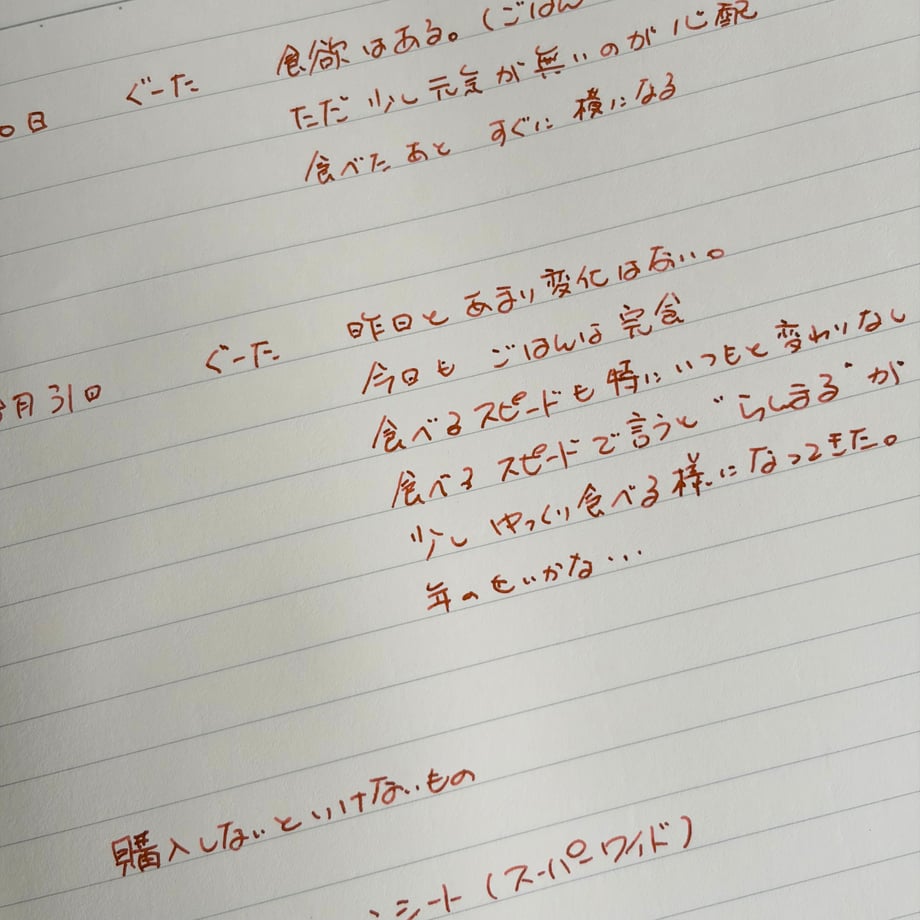 食欲はある。(ごはん
0日 ぐーた ただ 少し 元気が無いのが心配
食べたあと すぐに 横になる
月31日 ぐーた 昨日と あまり変化はない。
今日も ごはんは 完食
食べるスピードも 特に いつもと 変わりなし
食べる スピードで言うと"らんまる"が
少し ゆっくり食べる様になってきた。
年のせいかな...
購入しないといけないもの
シート(スーパーワイド)